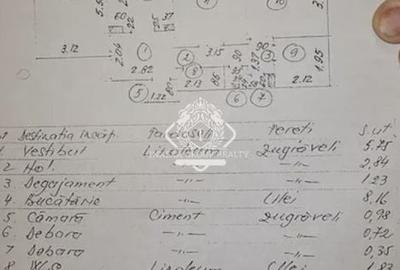 60 37
22 25
3.12 2.06 1 3.15 90 90 3 9 1.95
2 1.37
2.62 8 2.12
5 1.22 2.13 86
6 7
Destinatia încăp. Pardoseli Pereti S.ut.
1 Vestibul Linoleum Zugrăveli 5.75
2 Hol. -"- -"- 2,84
3. Degajament -"- -"- 1.23
4. Bucătărie -"- Ulei 8,16
5. Cămara Ciment Zugrăveli 0,98
6. Debara -"- -"- 0,72
7 Debara -"- -"- 0,35
8 W.C. Linoleum Ulei 1,83